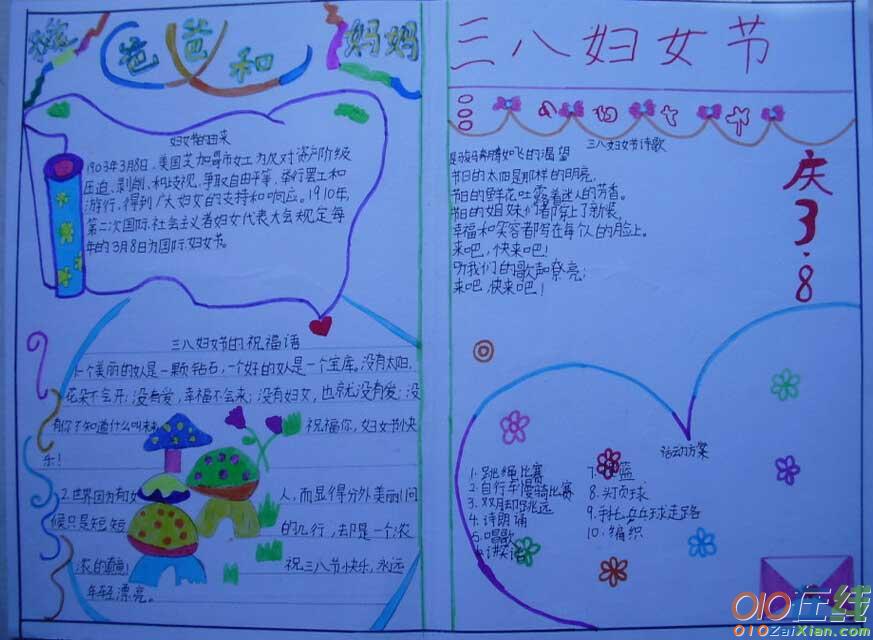 爸爸和妈妈
妇女节的由来
1903年3月8日,美国芝加哥市女工为反对资产阶级
压迫、剥削、和歧视,争取自由平等,举行罢工和
游行,得到广大妇女的支持和响应。1910年,
第二次国际社会主义者妇女代表大会规定每
年的3月8日为国际妇女节。
三八妇女节的祝福语
1.一个美丽的女人是一颗钻石,一个好的女人是一个宝库。没有太阳,
花朵不会开;没有爱,幸福不会来;没有妇女,也就没有爱;没
有你不知道什么叫未来 祝福你,妇女节快
乐!
2.世界因为有女 人,而显得分外美丽!问
候只是短短 的几行,去却是一个浓
浓的 祝三八节快乐,永远
年轻漂亮。
三八妇女节
三八妇女节诗歌
骏马奔腾如飞的渴望
节日的太阳是那样的明亮,
节日的鲜花吐露着迷人的芳香。
节日的姐妹们都穿上了新装,
幸福和笑容都写在每个人的脸上。
来吧,快来吧!
听我们的歌声嘹亮;
来吧,快来吧!
庆3.8
活动方案
1.跳绳比赛
2.自行车慢骑比赛
3.双月却跳远
4.诗朗诵
5.唱歌
6.讲笑话
7. 篮
8.头顶球
9.手托乒乓球走路
10.编织
010在线
010ZaiXian.com